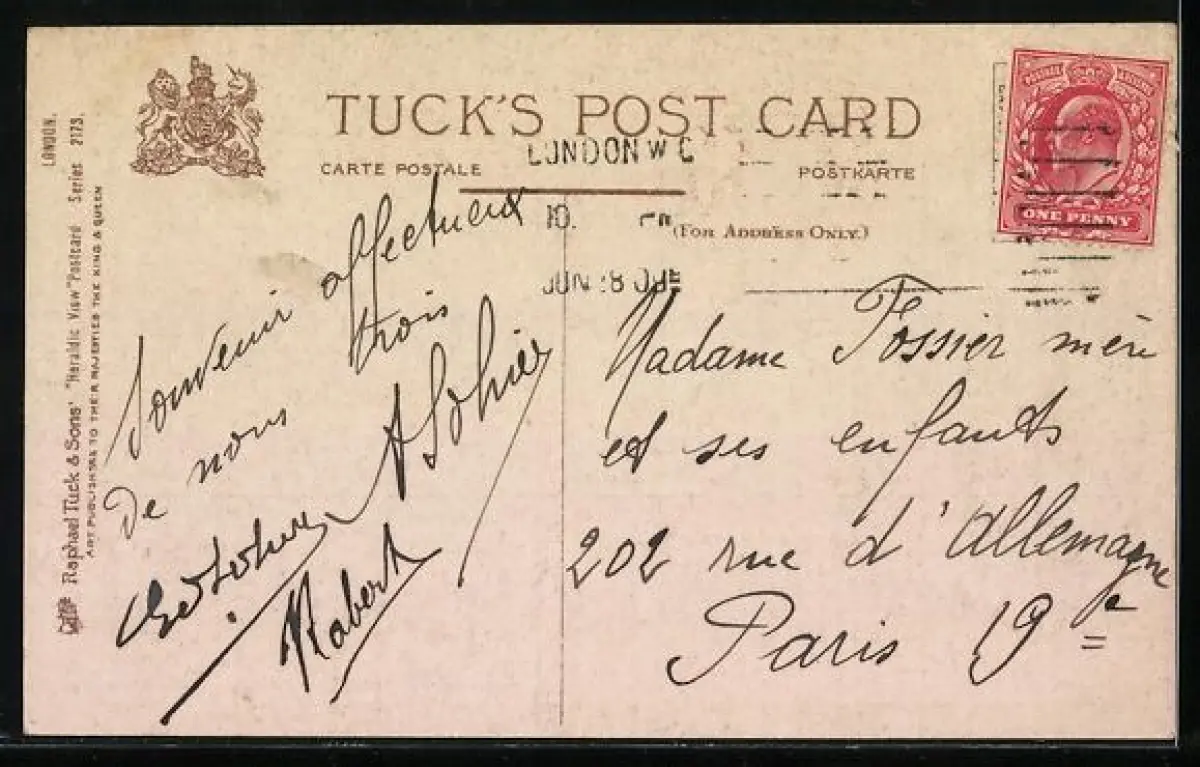 TUCK'S POST CARD
CARTE POSTALE
POSTKARTE
(FOR ADDRESS ONLY.)
LONDON W C
10.
JUN 28
ONE PENNY
LONDON.
Raphael Tuck & Sons' "Heraldic View" Postcard Series 2173.
ART PUBLISHERS TO THEIR MAJESTIES THE KING & QUEEN
Souvenir affectueux
de nous trois
A Sohier
Robert
Madame Fossier mère
et ses enfants
202 rue d'allemagne
Paris 19e